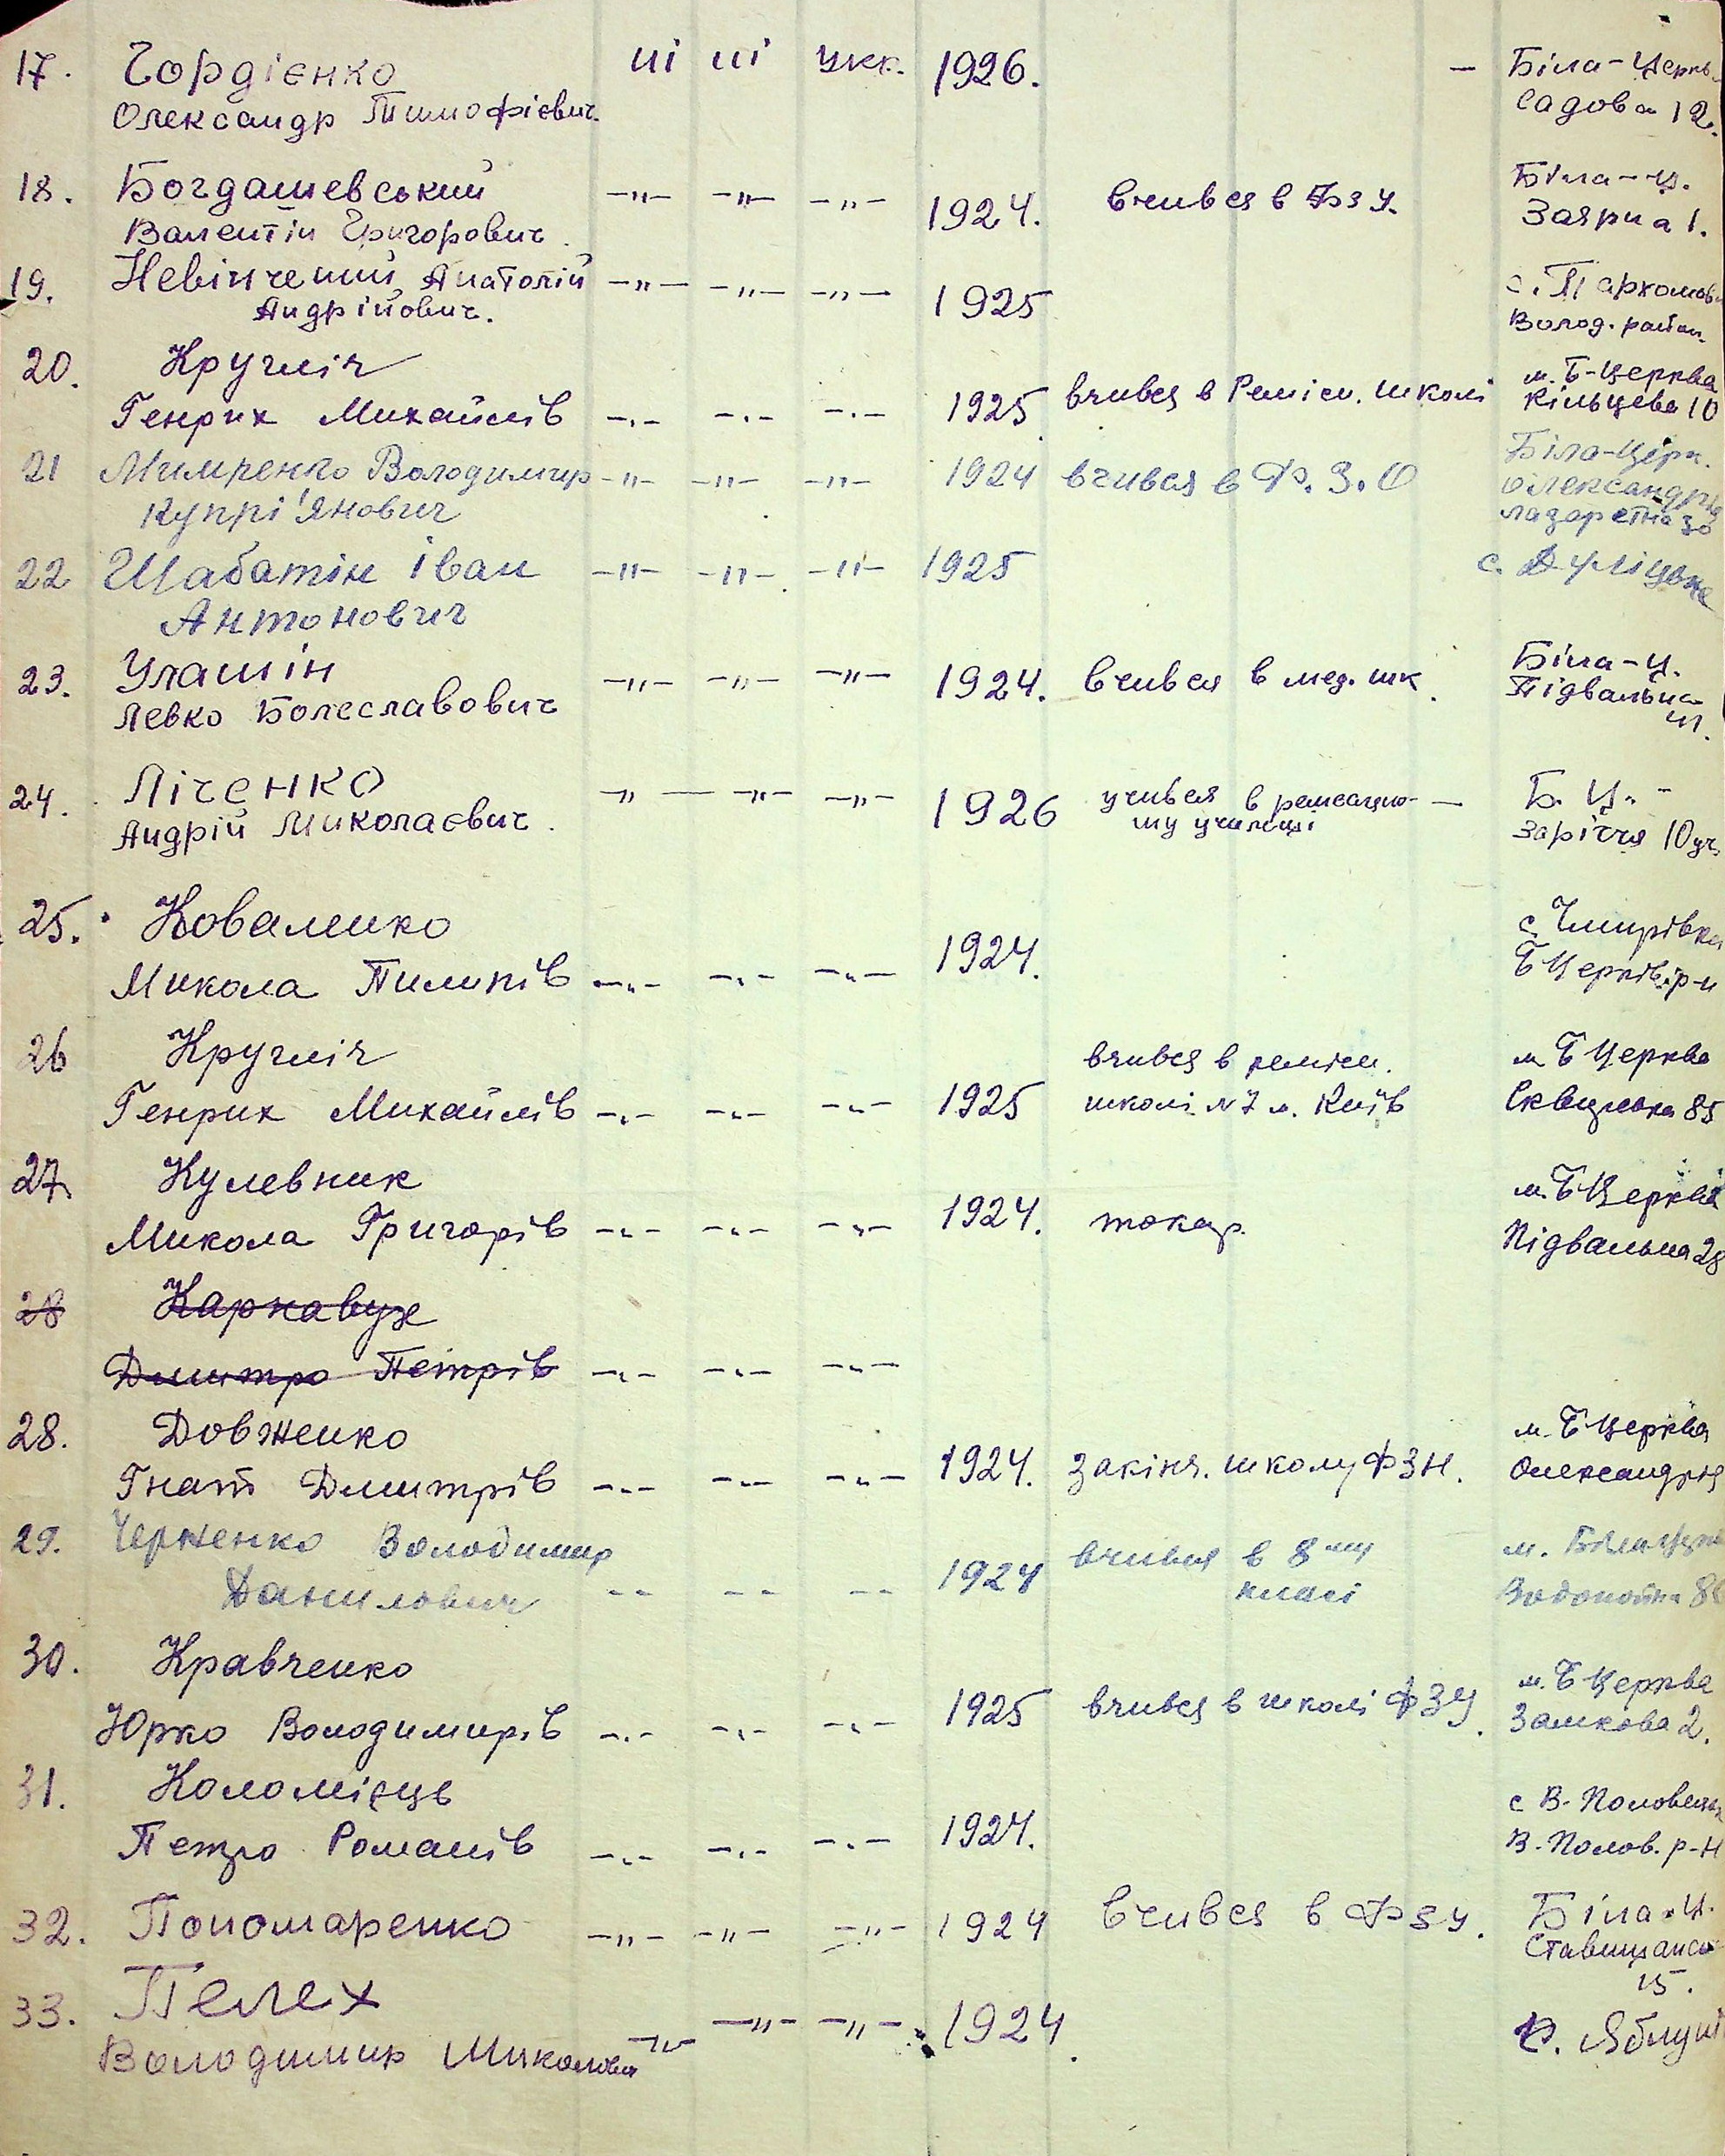 17. Гордієнко ні ні укр. 1926. — Біла-Церкв.
Олександр Тимофієвич. Садова 12.
18. Богдашевський —"— —"— —"— 1924. вчився в ФЗУ. Біла-Ц.
Валентін Григорович. Заярна 1.
19. Невінчений Анатолій —"— —"— —"— 1925 с. Пархомів
Андрійович. Волод. район.
20. Кругліч м. Б-Церква
Генрих Михайлів —"— —"— —"— 1925 вчився в Ремісн. школі Кільцева 10
21 Мимренко Володимир —"— —"— —"— 1924 вчився в Ф.З.О Біла-Церк.
Купрі'янович Олександрія
лазаретна 30
22 Шабатін Іван —"— —"— —"— 1925 с. Дрліцьке
Антонович
23. Улашін —"— —"— —"— 1924. вчився в мед. шк. Біла-Ц.
Левко Болеславович Підвальна
41.
24. Ліченко —"— —"— —"— 1926 учився в ремесно- — Б. Ц. -
Андрій Миколаєвич. му училищі заріччя 10 уч.
25. Коваленко с. Чмирівка
Микола Пилипів —"— —"— —"— 1924. Б Церків. р-н
26 Кругліч вчився в ремісн. м Б Церква
Генрих Михайлів —"— —"— —"— 1925 школі N 7 м. Київ Сквирська 85
27 Кулевник м. Б Церква
Микола Григорів —"— —"— —"— 1924. токар. Підвальна 28
28 Карнавух
Дмитро Петрів —"— —"— —"—
28. Довженко м. Б Церква
Гнат Дмитрів —"— —"— —"— 1924. Закінч. школу ФЗН. Олександрія
29. Черненко Володимир вчився в 8му м. Біла Церк
Данилович -- -- -- 1924 класі Водопойна 8
30. Кравченко м. Б Церква
Юрко Володимирів —"— —"— —"— 1925 вчився в школі ФЗУ. Замкова 2.
31. Коломієць с В-Половецьк
Петро Романів —"— —"— —"— 1924. В-Полов. р-н
32. Пономаренко —"— —"— —"— 1924 вчився в ФЗУ. Біла Ц.
Ставищанськ
15.
33. Пелех —"— —"— —"— 1924. с. Яблуні
Володимир Миколович